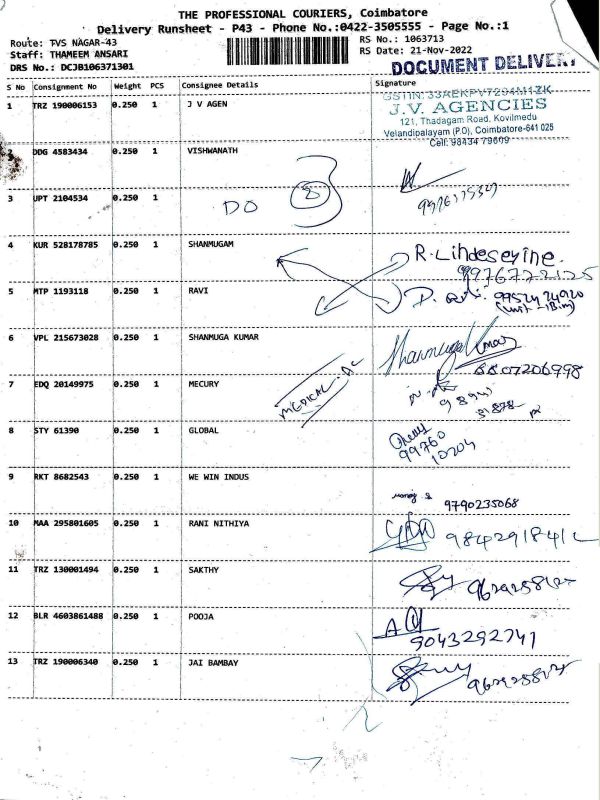 THE PROFESSIONAL COURIERS, Coimbatore
Delivery Runsheet - P43 - Phone No.:0422-3505555 - Page No.:1
Route: TVS NAGAR-43
RS No.: 1063713
Staff: THAMEEM ANSARI
RS Date: 21-Nov-2022
DRS No.: DCJB106371301
DOCUMENT DELIVERY
S No Consignment No Weight PCS Consignee Details Signature
GSTIN: 33AEKPV7294M1ZK
1 TRZ 190006153 0.250 1 J V AGEN
J.V. AGENCIES
121, Thadagam Road, Kovilmedu
Velandipalayam (P.O), Coimbatore-641 025
Cell: 98434 79609
DDG 4583434 0.250 1 VISHWANATH
3 UPT 2104534 0.250 1
DO 8
4 KUR 528178785 0.250 1 SHANMUGAM
R. Lindeseyine.
9976722125
5 MTP 1193118 0.250 1 RAVI
99524 24920
6 VPL 215673028 0.250 1 SHANMUGA KUMAR
Shanmuga Kumar
8807206998
7 EDQ 20149975 0.250 1 MECURY
MEDICAL
98941
51878
8 STY 61390 0.250 1 GLOBAL
99760
10204
9 RKT 8682543 0.250 1 WE WIN INDUS
9790235068
10 MAA 295801605 0.250 1 RANI NITHIYA
984291841
11 TRZ 130001494 0.250 1 SAKTHY
12 BLR 4603861488 0.250 1 POOJA
9043292741
13 TRZ 190006340 0.250 1 JAI BAMBAY